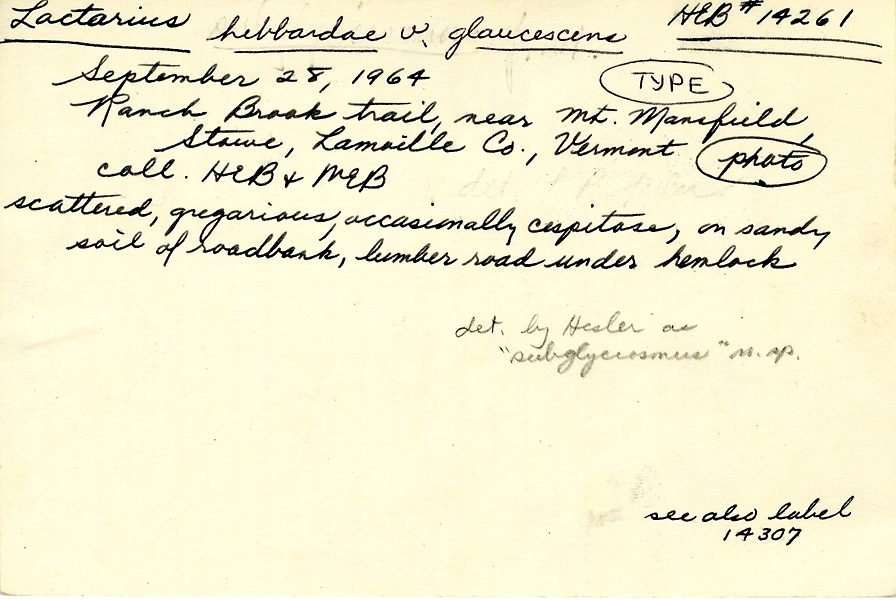 Lactarius hebbardae v. glaucescens HEB #14261
September 28, 1964 TYPE
Ranch Brook trail, near Mt. Mansfield,
Stowe, Lamoille Co., Vermont photo
coll. HEB & MEB
scattered, gregarious, occasionally cespitose, on sandy
soil of roadbank, lumber road under hemlock
det. by Hesler as
"subglyciosmus" n. sp.
see also label
14307